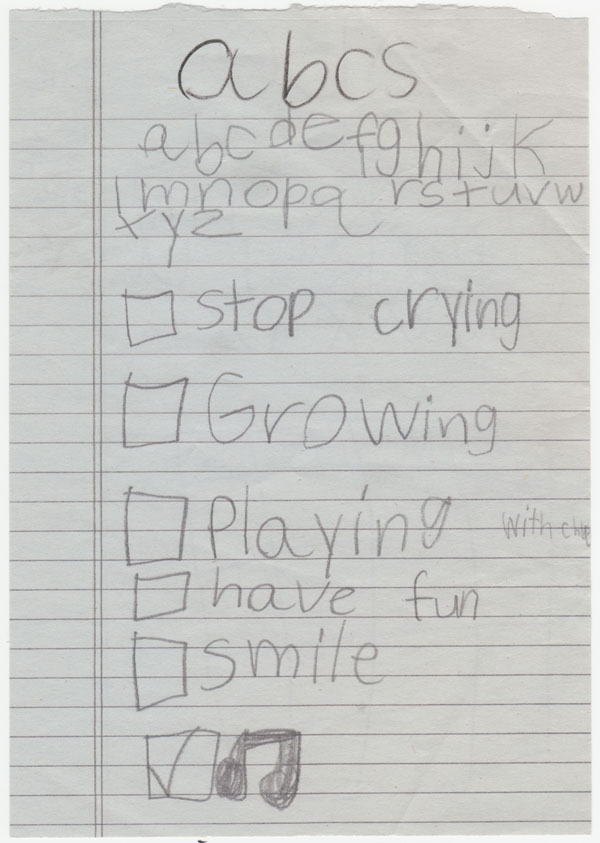 abcs
abcdefghijk
lmnopq rstuvw
xyz
stop crying
Growing
Playing with
have fun
smile